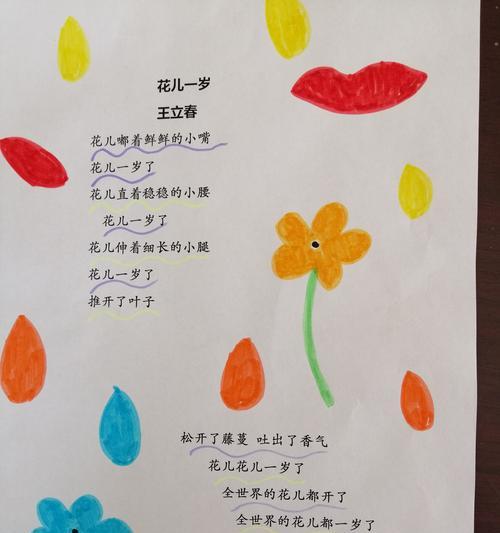 花儿一岁
王立春
花儿嘟着鲜鲜的小嘴
花儿一岁了
花儿直着稳稳的小腰
花儿一岁了
花儿伸着细长的小腿
花儿一岁了
推开了叶子
松开了藤蔓 吐出了香气
花儿花儿一岁了
全世界的花儿都开了
全世界的花儿都一岁了